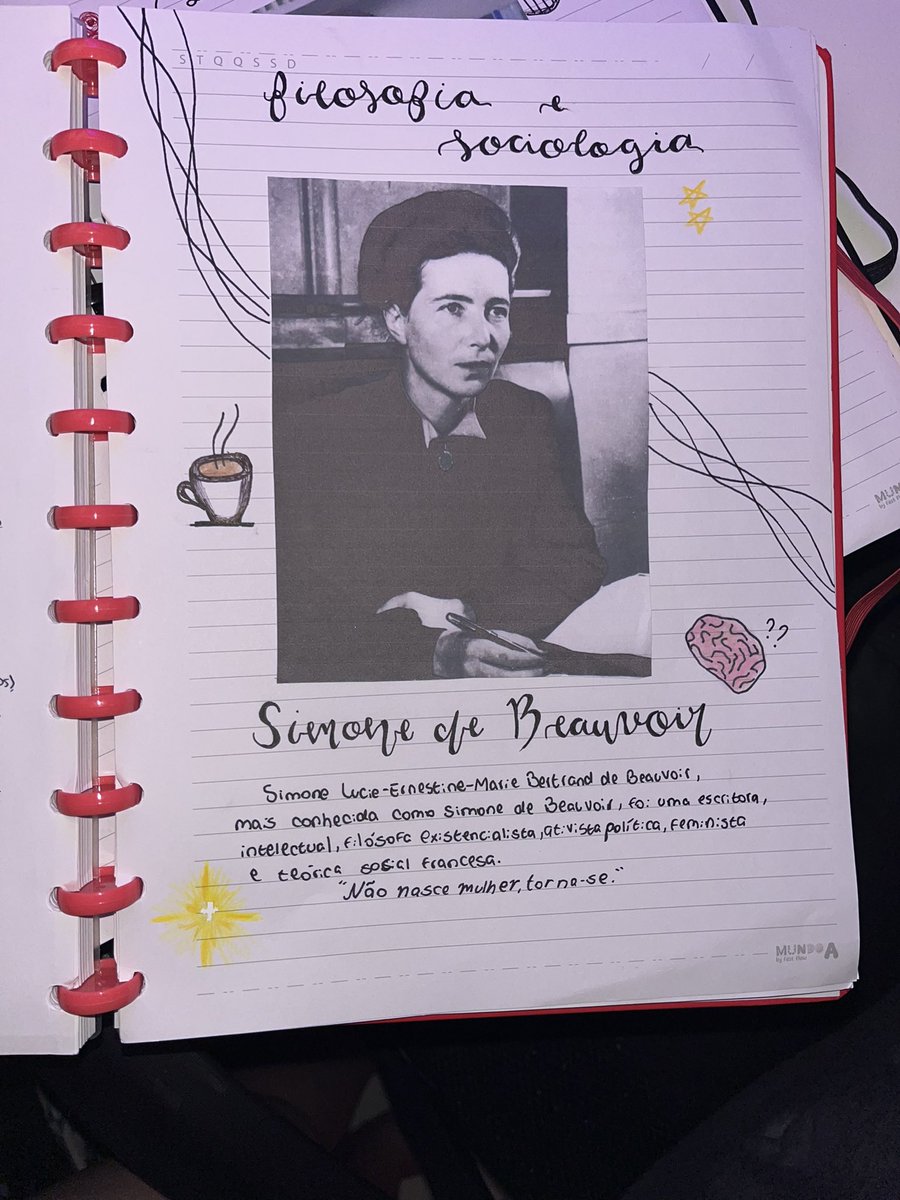 STQQSSD / /
filosofia e
sociologia
??
Simone de Beauvoir
Simone Lucie-Ernestine-Marie Bertrand de Beauvoir,
mais conhecida como Simone de Beauvoir, foi uma escritora,
intelectual, filósofa existencialista, ativista política, feminista
e teórica social francesa.
"Não nasce mulher, torna-se."
MUNDO A
by Fast Flow
os)
MUN
by Fast